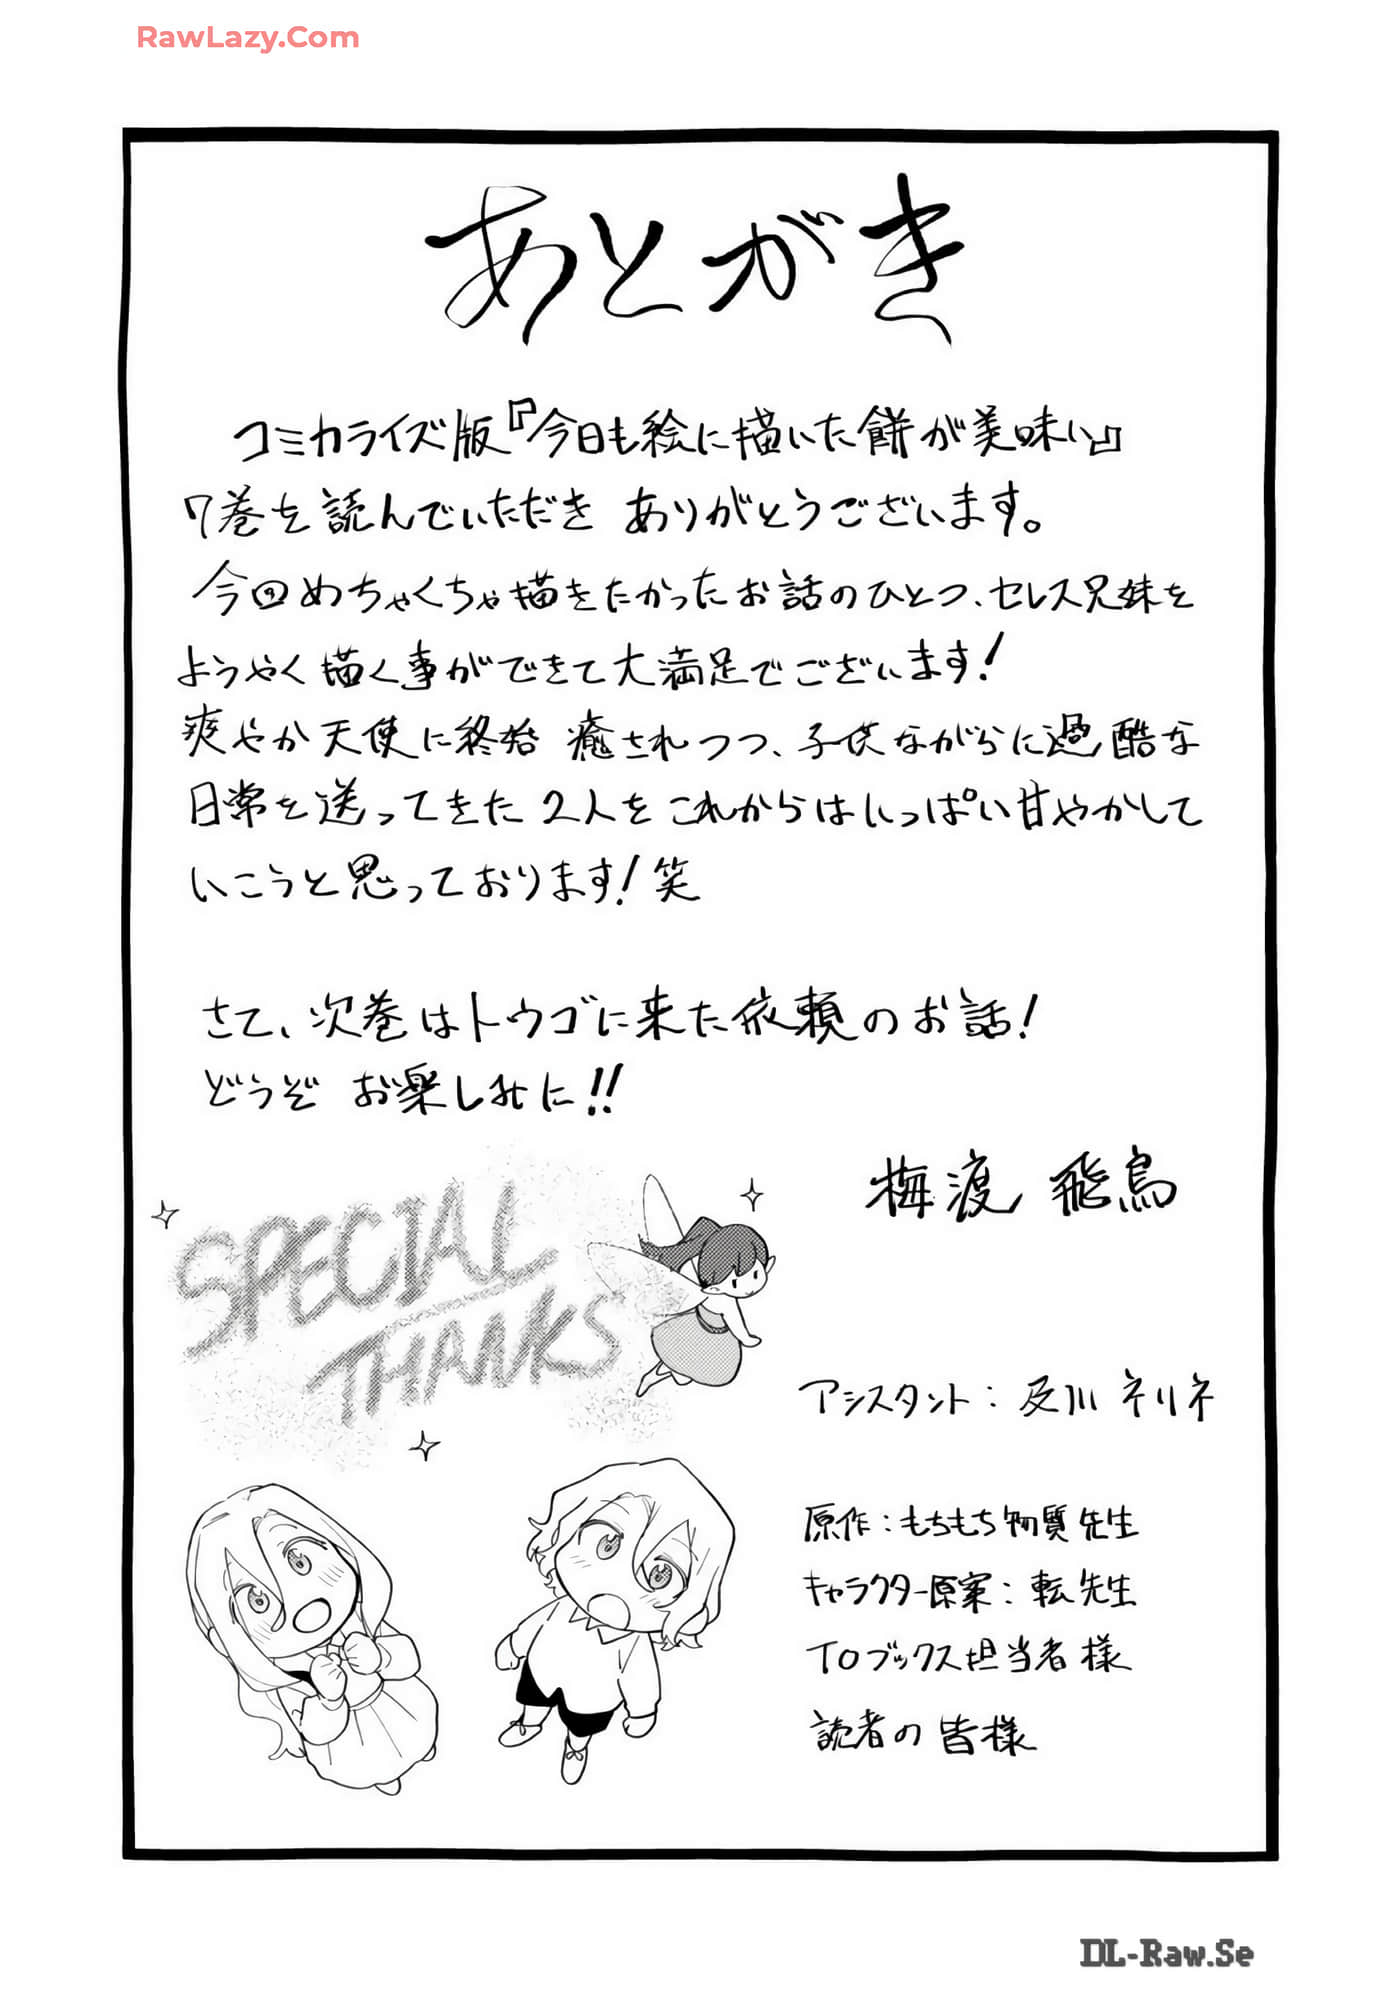 RawLazy.Com
あとがき
コミカライズ版『今日も絵に描いた餅が美味い』
7巻を読んでいただき ありがとうございます。
今回めちゃくちゃ描きたかったお話のひとつ、セレス兄妹を
ようやく描く事ができて大満足でございます!
爽やか天使に終始 癒されつつ、子供ながらに過酷な
日常を送ってきた2人をこれからはいっぱい甘やかして
いこうと思っております!笑
さて、次巻はトウゴに来た依頼のお話!
どうぞ お楽しみに!!
梅渡 飛鳥
SPECIAL
THANKS
アシスタント:及川 ネリネ
原作:もちもち物質先生
キャラクター原案:転先生
TOブックス担当者様
読者の皆様
DL-Raw.Se